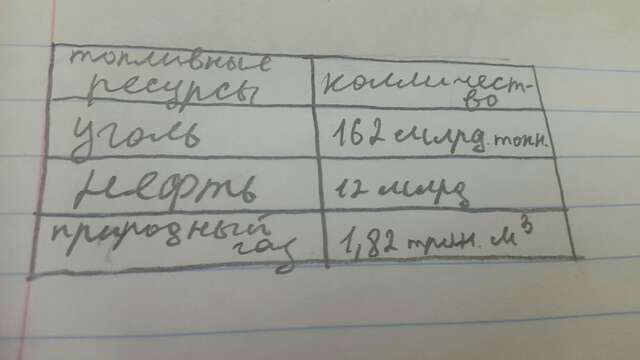 топливные
ресурсы
колличест-
во
уголь
162 млрд. тонн.
нефть
12 млрд
природный
газ
1,82 трлн. м³